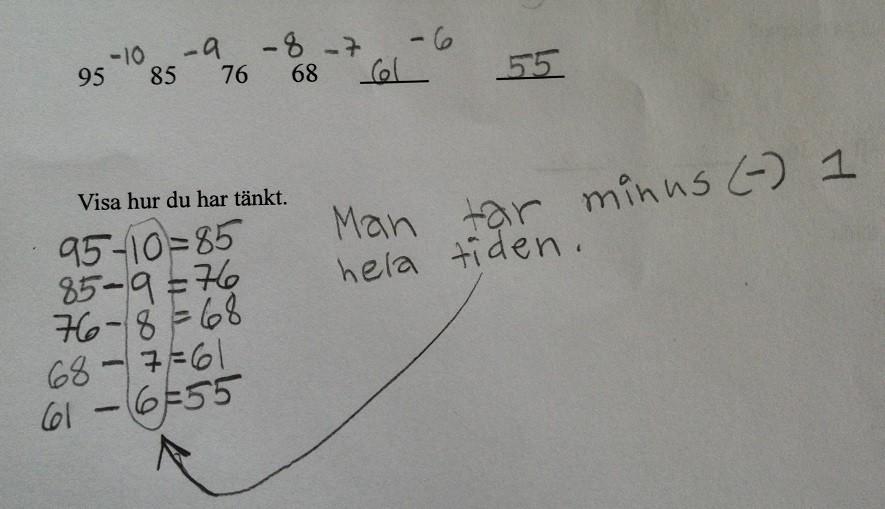 -10 -9 -8 -7 -6
95 85 76 68 61 55
Visa hur du har tänkt.
95-10=85
85-9=76
76-8=68
68-7=61
61-6=55
Man tar minus (-) 1
hela tiden.